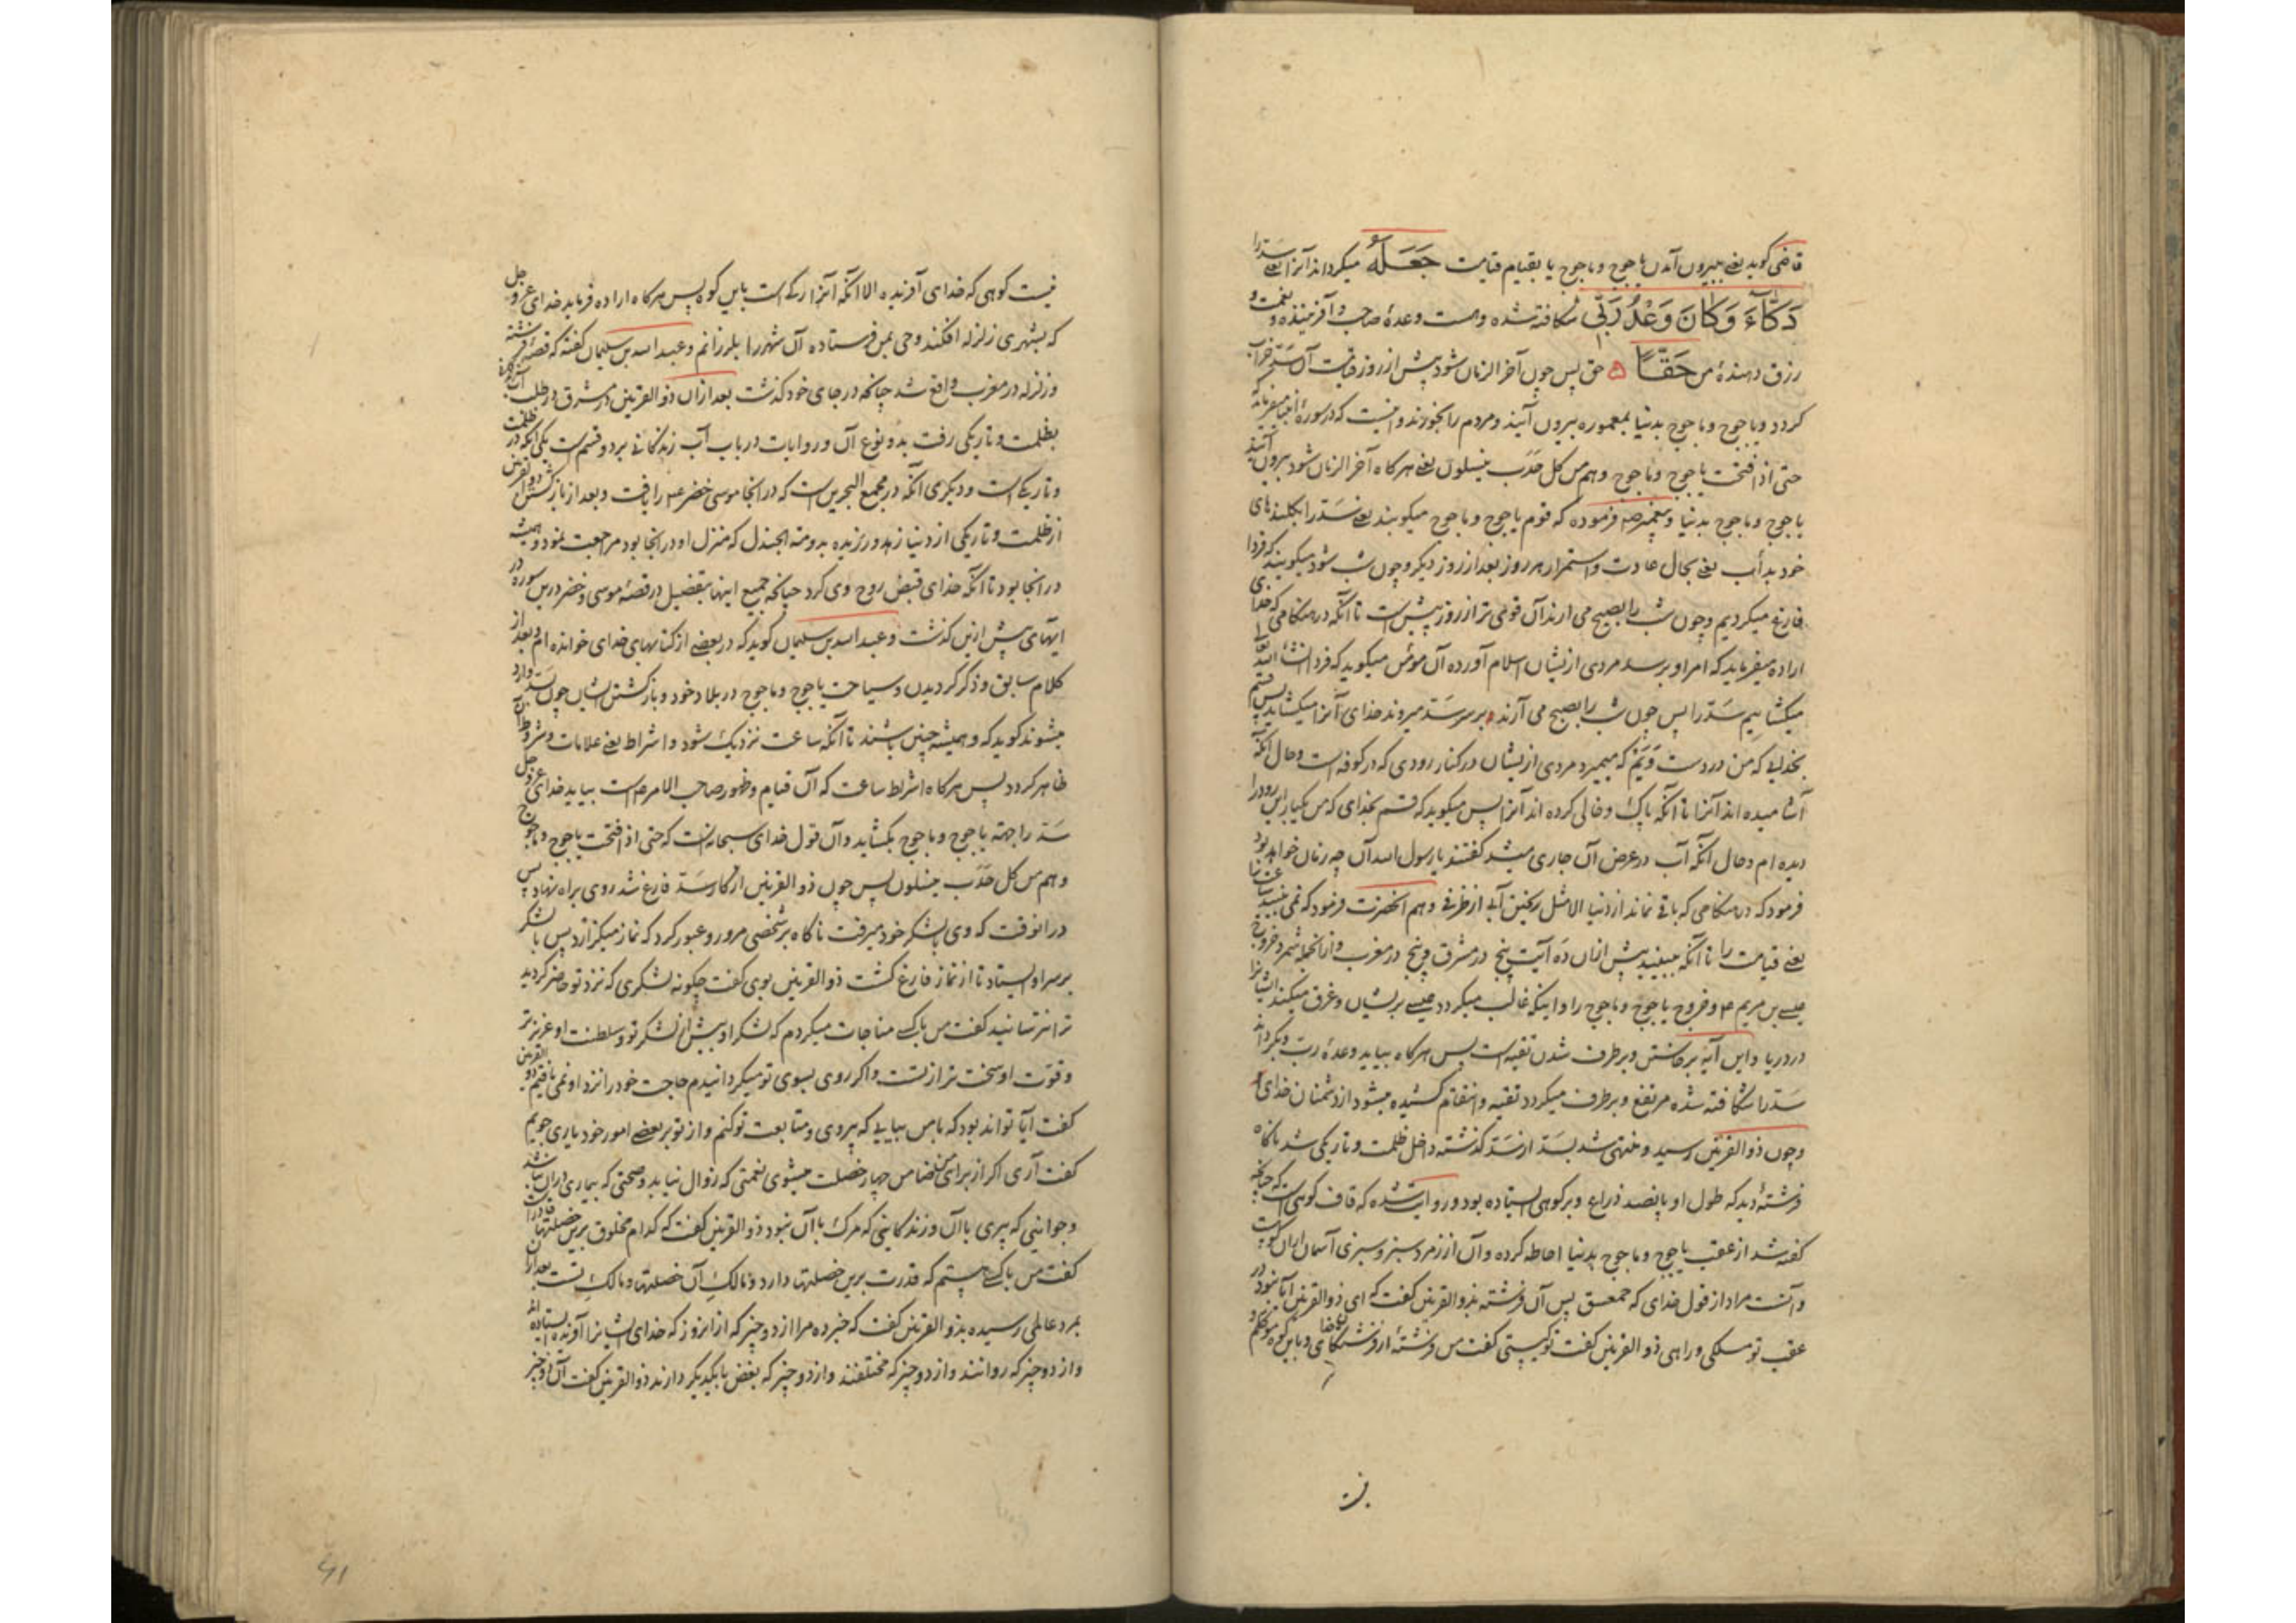 قاضی کوید یعنی بیرون آمدن یاجوج و ماجوج یا بقیام قیامت جَعَلَهُ میکرداند آنرا یعنی سدّ را
دَكَّآءَ وَكَانَ وَعْدُ رَبّى شکافته شده وهست وعدهٔ صاحب و آفریننده و نعمت و
رزق دهندهٔ من حَقًّا حق پس چون آخر الزمان شود پیش از روز قیامت آن سدّ خراب
کردد ویاجوج وماجوج بدنیا بمعموره بیرون آیند ومردم را بخورند واینست که در سورهٔ انبیا میفرماید که
حتی اذا فتحت یاجوج وماجوج وهم من کل حدب ینسلون یعنی هرکاه آخر الزمان شود بیرون آیند
یاجوج وماجوج بدنیا وپیغمبر ص فرموده که قوم یاجوج وماجوج میکوبند یعنی سدّ را بکلندهای
خود بدأب یعنی بحال عادت واستمرار هر روز بعد از روز دیکر وچون شب شود میکویند که فردا
فارغ میکردیم وچون شب را بصبح می ارند آن قوی تر از روز پیش است تا آنکه در هنکامی که خدای
اراده میفرماید که امر او برسد مردی ازیشان اسلام آورده آن مؤمن میکوید که فردا انشاء الله
میکشاییم سدّ را پس چون شب را بصبح می آرند و بر سر سدّ میروند خدای آنرا میکشاید پس قسم
بخدایی که من در دست ویم که میمیرد مردی ازیشان در کنار رودی که در کوفه است وحال آنکه
آشامیده اند آنرا تا آنکه پاک وخالی کرده اند آنرا پس میکوید که قسم بخدای که من یکبار این رود را
دیده ام وحال آنکه آب در عرض آن جاری میشد کفتند یا رسول الله آن چه زمان خواهد بود
فرمود که در هنکامی که باقی نماند از دنیا الا مثل ریختن آبی از ظرفی وهم انحضرت فرمود که نمی بینید ساعت را
یعنی قیامت را تا آنکه ببینید پیش ازان ده آیت پنج در مشرق وپنج در مغرب وازانجمله شمرد خروج
عیسی بن مریم ع وخروج یاجوج وماجوج را و اینکه غالب میکردد عیسی بریشان وغرق میکند ایشانرا
در دریا واین آیه برخاستن وبرطرف شدن تقیه است پس هرکاه بیاید وعدهٔ ربّ وبکرداند
سدّ را شکافته شده مرتفع وبرطرف میکردد تقیه وانتقام کشیده میشود از دشمنان خدای
وچون ذو القرنین رسید و منتهی شد بسدّ از سدّ کذشته داخل ظلمت وتاریکی شد ناکاه
فرشتهٔ دید که طول او پانصد ذراع وبر کوهی ایستاده بود وروایت شده که قاف کوهی است که چنانچه
کفته شد از عقب یاجوج وماجوج بدنیا احاطه کرده وآن از زمرد سبز وسبزی آسمان ازان کوه است
وآنست مراد از قول خدای که حمعسق پس آن فرشته بذو القرنین کفت که ای ذو القرنین آیا نبود در
عقب تو مسلکی وراهی ذو القرنین کفت تو کیستی کفت من فرشتهٔ از فرشتکان خدای و باین کوه موکلم و
نیست
نیست کوهی که خدای آفریده الا آنکه آنرا رکی است باین کوه پس هرکاه اراده فرماید خدای عز وجل
که بشهری زلزله افکند وحی بمن فرستاده آن شهر را بلرزانم وعبد الله بن سلیمان کفته که قصهٔ فرشته
وزلزله در مغرب واقع شد چنانچه در جای خود کذشت بعد ازان ذو القرنین در مشرق در طلب آب زندکانی
بظلمت وتاریکی رفت بدو نوع آن وروایات در باب آب زندکانی بر دو قسم است یکی انکه در ظلمت
وتاریکی است ودیکری آنکه در مجمع البحرین است که در انجا موسی خضر ع را یافت وبعد از بازکشتن ذو القرنین
از ظلمت وتاریکی از دنیا زهد ورزیده بدومة الجندل که منزل او در انجا بود مراجعت نمود وهمیشه
در انجا بود تا آنکه خدای قبض روح وی کرد چنانچه جمیع اینها بتفضیل در قصهٔ موسی وخضر درین سوره در
ایتهای پیش ازین کذشت وعبد الله بن سلیمان کوید که در بعضی از کتابهای خدای خوانده ام وبعد از
کلام سابق وذکر کردیدن وسیاحت یاجوج وماجوج در بلاد خود وبازکشتن ایشان چون بسدّ وارد
میشوند کوید که وهمیشه چنین باشند تا آنکه ساعت نزدیک شود واشراط یعنی علامات وشروط آن
ظاهر کردد پس هرکاه اشراط ساعت که آن قیام وظهور صاحب الامر ع است بیاید خدای عز وجل
سدّ را بجهة یاجوج وماجوج بکشاید وآن قول خدای سبحانه است که حتی اذا فتحت یاجوج وماجوج
وهم من کل حدب ینسلون پس چون ذو القرنین از کار سدّ فارغ شد روی براه نهاد پس
در انوقت که وی بالشکر خود میرفت ناکاه بر شخصی مرور وعبور کرد که نماز میکزارد پس با لشکر
بر سر او ایستاد تا از نماز فارغ کشت ذو القرنین بوی کفت چکونه لشکری که نزد تو حاضر کردید
ترا نترسانید کفت من با کسی مناجات میکردم که لشکر او بیش از لشکر تو وسلطنت او عزیزتر
وقوّت او سخت تر از تست واکر روی بسوی تو میکردانیدم حاجت خود را نزد او نمی یافتم ذو القرنین
کفت آیا تواند بود که با من بیایی که پیروی ومتابعت تو کنم واز تو بر بعضی امور خود یاری جویم
کفت آری اکر از برای من ضامن چهار خصلت میشوی نعمتی که زوال نیابد وصحتی که بیماری دران نباشد
وجوانیی که پیری باآن وزندکانیی که مرک باآن نبود ذو القرنین کفت که کدام مخلوق برین خصلتها قادر است
کفت من با کسی هستم که قدرت برین خصلتها دارد ومالک آن خصلتها ومالک تست بعد ازان
بمرد عالمی رسیده بذو القرنین کفت که خبر ده مرا از دو چیز که از انروز که خدای ایشانرا آفریده ایستاده اند
واز دو چیز که روانند واز دو چیز که مختلفند واز دو چیز که بغض بایکدیکر دارند ذو القرنین کفت آن دو چیز
41